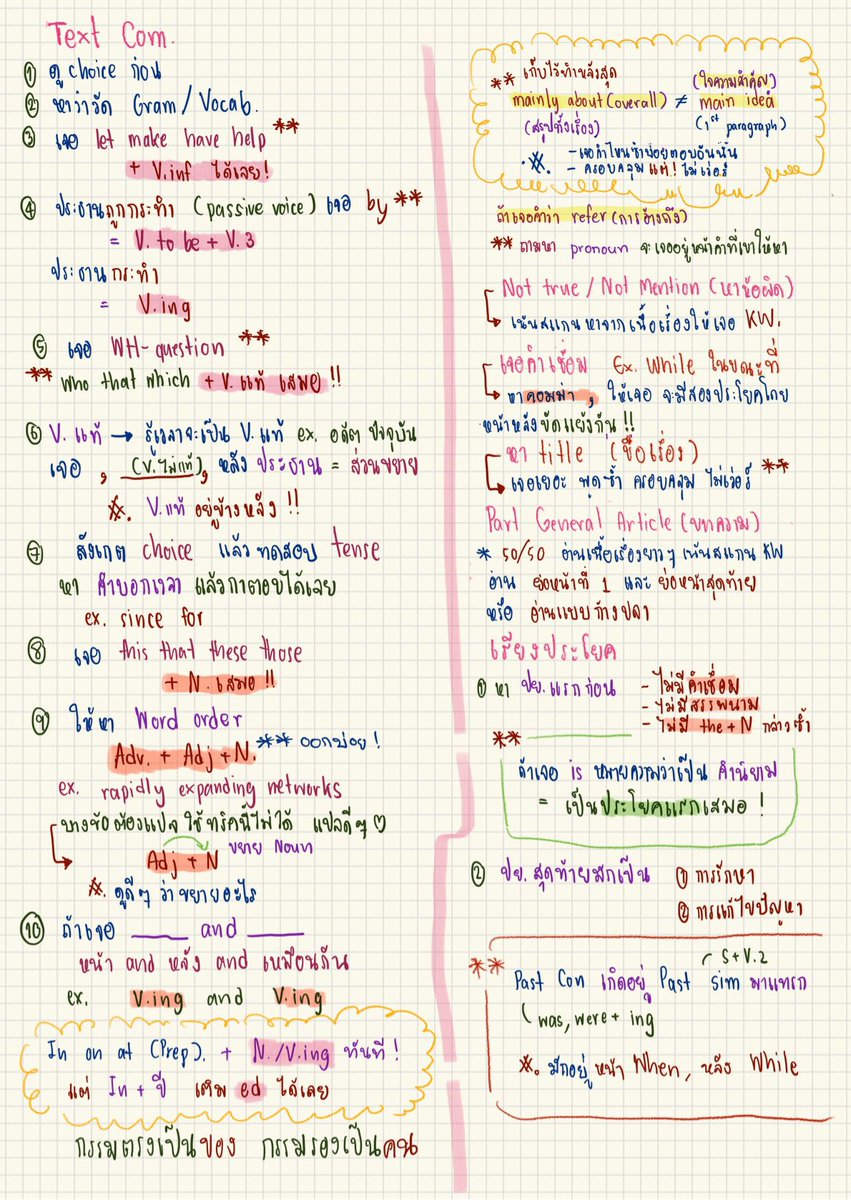 Text Com.
① ดู choice ก่อน
② หาว่าวัด Gram / Vocab.
③ เจอ let make have help **
+ V.inf ได้เลย!
④ ประธานถูกกระทำ (passive voice) เจอ by **
= V. to be + V.3
ประธานกระทำ
= V.ing
⑤ เจอ WH-question **
** Who that which + V. แท้ เสมอ !!
⑥ V. แท้ → รู้เวลาจะเป็น V. แท้ ex. อดีต ปัจจุบัน
เจอ , (V.ไม่แท้) , หลัง ประธาน = ส่วนขยาย
※. V.แท้ อยู่ข้างหลัง !!
⑦ สังเกต choice แล้วทดสอบ tense
หา คำบอกเวลา แล้วกาตอบได้เลย
ex. since for
⑧ เจอ this that these those
+ N. เสมอ !!
⑨ ให้หา Word order
Adv. + Adj + N. ** ออกบ่อย !
ex. rapidly expanding networks
บางข้อต้องแปล ใช้ทริคนี้ไม่ได้ แปลดีๆ ♡
Adj + N ขยาย Noun
※. ดูดีๆ ว่าขยายอะไร
⑩ ถ้าเจอ ____ and ____
หน้า and หลัง and เหมือนกัน
ex. V.ing and V.ing
In on at (Prep). + N./V.ing ทันที !
แต่ In + ปี เติม ed ได้เลย
กรรมตรงเป็นของ กรรมรองเป็นคน
** เก็บไว้ทำหลังสุด (ใจความสำคัญ)
mainly about (overall) ≠ main idea
(สรุปทั้งเรื่อง) (1st paragraph)
※. - เจอคำไหนซ้ำบ่อยตอบอันนั้น
- ครอบคลุม แต่! ไม่เว่อร์
ถ้าเจอคำว่า refer (การอ้างถึง)
** ถามหา pronoun จะเจออยู่หน้าคำที่เขาให้หา
Not true / Not Mention (หาข้อผิด)
เน้นสแกนหาจากเนื้อเรื่องให้เจอ KW.
เจอคำเชื่อม Ex. While ในขณะที่
หาคอมม่า , ให้เจอ จะมีสองประโยคโดย
หน้าหลังขัดแย้งกัน !!
หา title (ชื่อเรื่อง)
เจอเยอะ พูดซ้ำ ครอบคลุม ไม่เว่อร์ **
Part General Article (บทความ)
* 50/50 อ่านเนื้อเรื่องยาวๆ เน้นสแกน KW
อ่าน ย่อหน้าที่ 1 และ ย่อหน้าสุดท้าย
หรือ อ่านแบบก้างปลา
เรียงประโยค
① หา ปย.แรกก่อน - ไม่มีคำเชื่อม
- ไม่มีสรรพนาม
- ไม่มี the + N กล่าวซ้ำ
**
ถ้าเจอ is หมายความว่าเป็น คำนิยาม
= เป็นประโยคแรกเสมอ !
② ปย.สุดท้ายมักเป็น ① การรักษา
② การแก้ไขปัญหา
S + V.2
** Past Con เกิดอยู่ Past Sim มาแทรก
(was, were + ing
※. มักอยู่ หน้า When, หลัง While